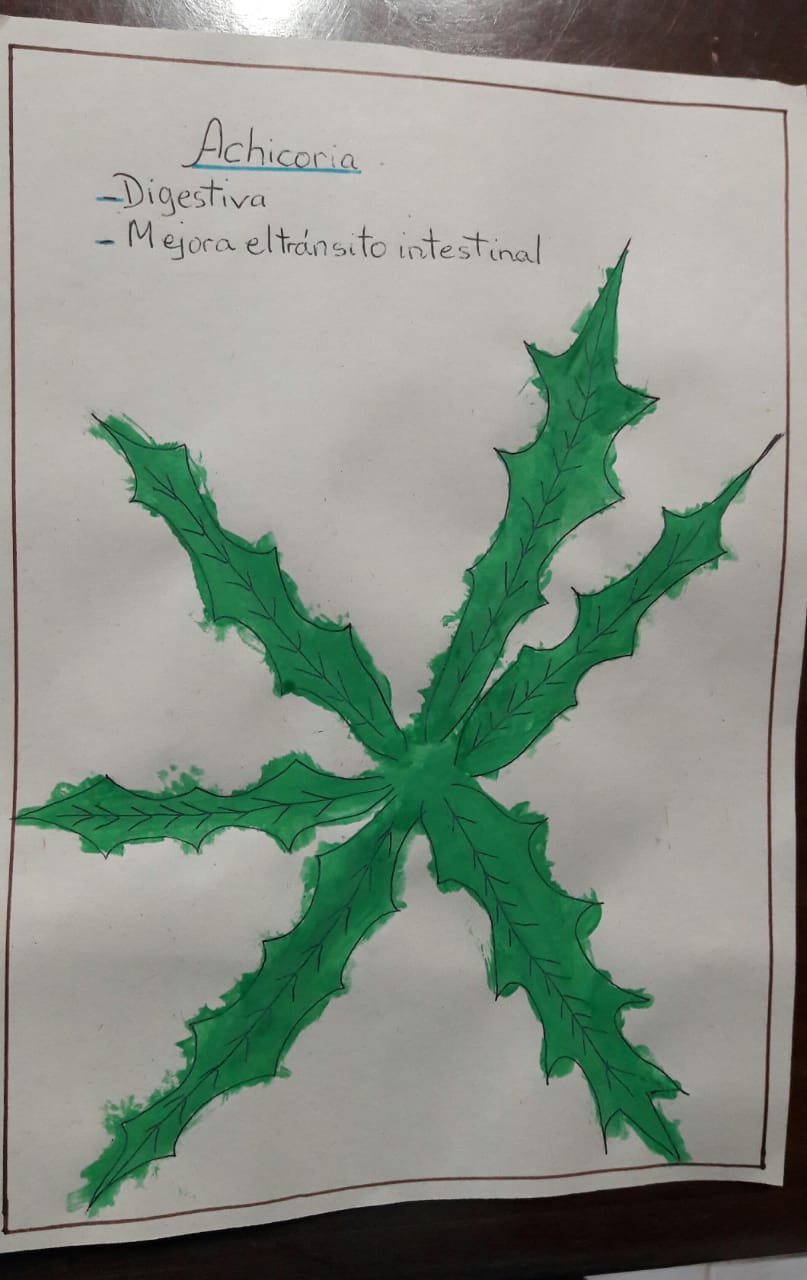 Achicoria
- Digestiva
- Mejora el tránsito intestinal